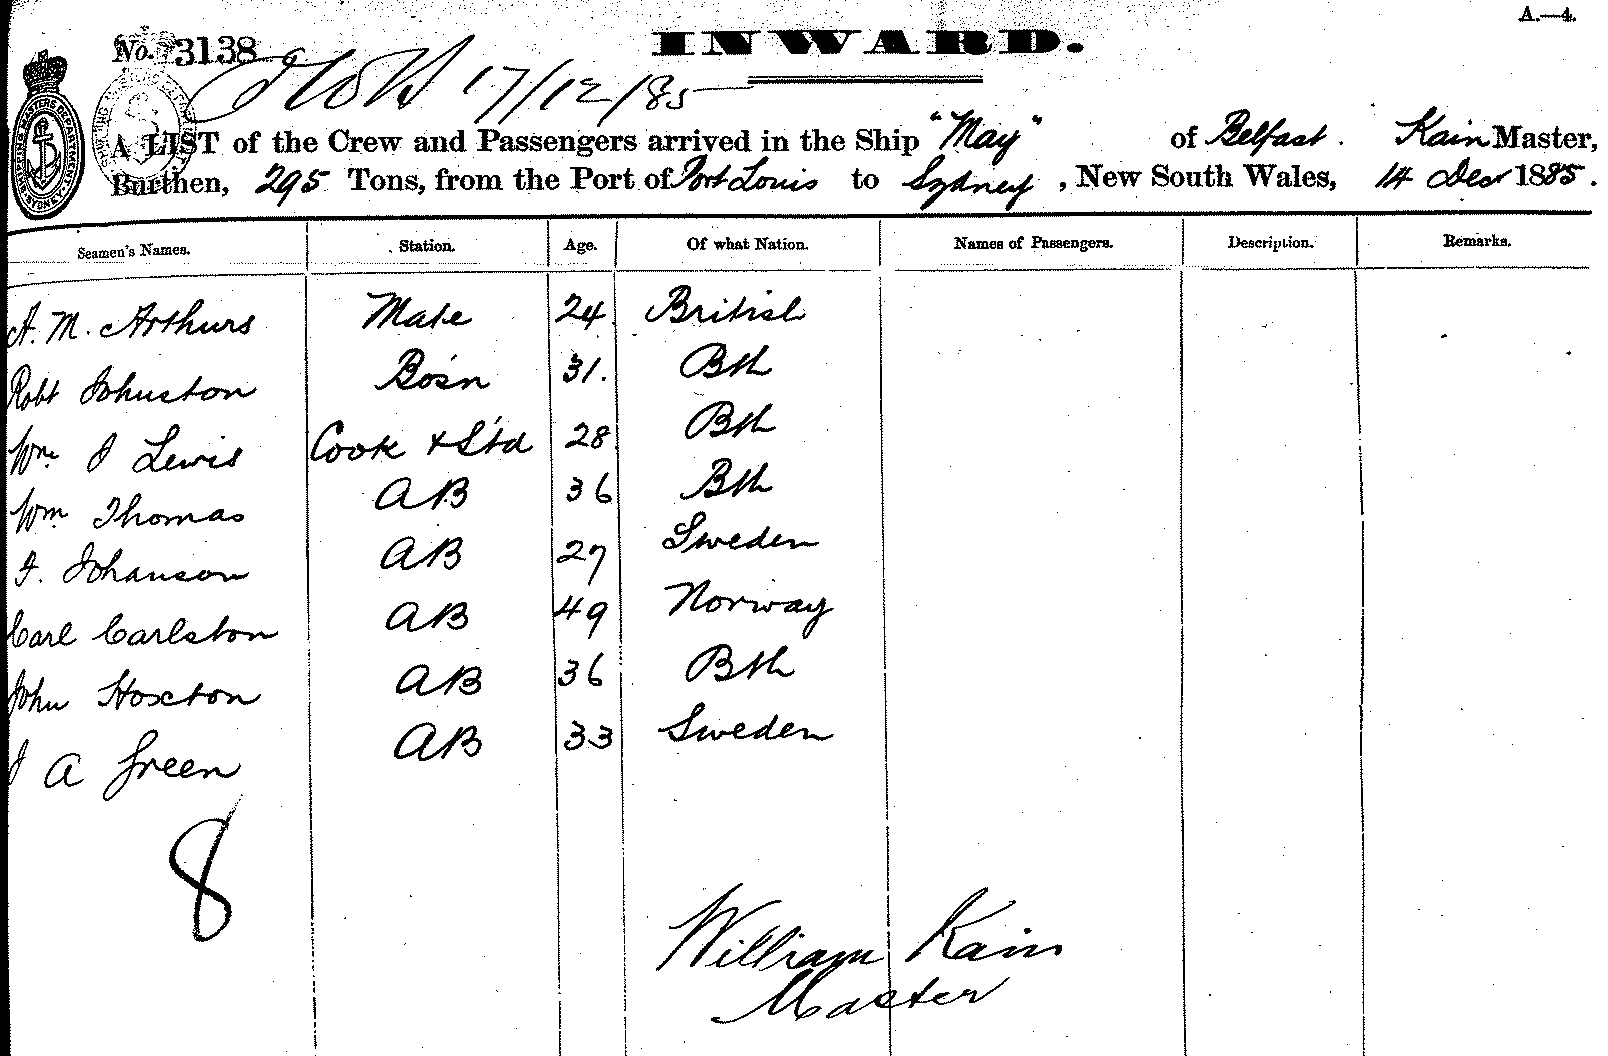 A.—4.
No. 3138
INWARD.
17/12/85
A LIST of the Crew and Passengers arrived in the Ship "May" of Belfast. Kain Master,
Burthen, 295 Tons, from the Port of Port Louis to Sydney, New South Wales, 14 Decr 1885.
Seamen's Names. Station. Age. Of what Nation. Names of Passengers. Description. Remarks.
A. M. Arthurs Mate 24 British
Robt Johnston Bosn 31. Bth
Wm J Lewis Cook + Std 28 Bth
Wm Thomas AB 36 Bth
J. Johanson AB 27 Sweden
Carl Carlston AB 49 Norway
John Hoxton AB 36 Bth
J A Green AB 33 Sweden
8
William Kain
Master